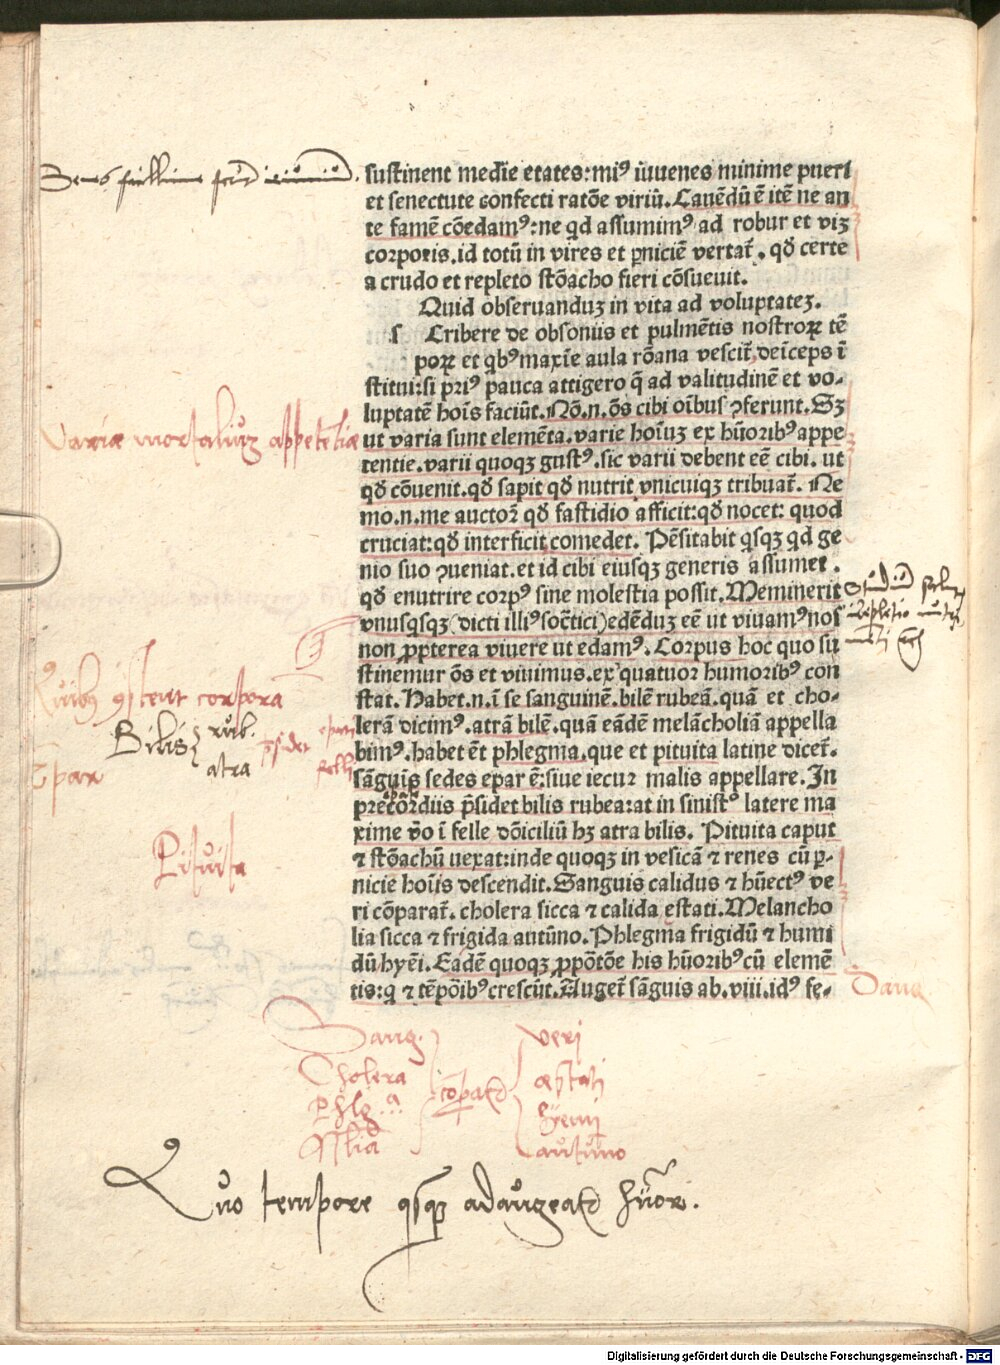 Senes facillime
sustinent medie etates: miꝰ iuuenes minime pueri
et senectute confecti ratõe viriū. Cauēdū ē itē ne an
te famē cõedamꝰ: ne qd assumimꝰ ad robur et viꝫ
corporis. id totū in vires et ꝑniciē vertat̄. qđ certe
a crudo et repleto stõacho fieri cõsueuit.
Quid obseruanduꝫ in vita ad voluptateꝫ.
ſ Cribere de obsoniis et pulmētis nostroꝝ tē
poꝝ et qbꝰ maxīe aula rõana vescit̄, deīceps ī
stitui: si priꝰ pauca attigero q̄ ad valitudinē et vo-
luptatē hoīs faciūt. Nõ.n.õs cibi oībus ꝯferunt. Sꝫ
ut varia sunt elemēta. varie hoīuꝫ ex hūoribꝰ appe
tentie. varii quoqꝫ gustꝰ. sic varii debent eē cibi. ut
qđ cõuenit. qđ sapit qđ nutrit vnicuiqꝫ tribuat̄. Ne
mo.n.me auctoē qđ fastidio afficit: qđ nocet: quod
cruciat: qđ interficit comedet. Pēsitabit qsqꝫ qd ge
nio suo ꝯueniat. et id cibi eiusqꝫ generis assumet.
qđ enutrire corpꝰ sine molestia possit. Meminerit
vnusqsqꝫ (dicti illiꝰ socītici) edēduꝫ eē ut viuamꝰ nos
non ꝓpterea viuere ut edamꝰ. Corpus hoc quo su
stinemur õs et viuimus. ex quatuor humoribꝰ con
stat. Habet.n.ī se sanguinē. bilē rubeā. quā et cho-
lerā dicimꝰ. atrā bilē. quā eādē melācholiā appella
bimꝰ. habet ēt phlegma. que et pituita latine dicet̄.
sāguis sedes epar ē: siue iecur malis appellare. In
precordiis p̄sidet bilis rubea: at in sinistꝰ latere ma
xime ṽo ī felle dõiciliū hꝫ atra bilis. Pituita caput
⁊ stõachū uexat: inde quoqꝫ in vesicā ⁊ renes cū ꝑ-
nicie hoīs descendit. Sanguis calidus ⁊ hūectꝰ ve
ri cõparat̄. cholera sicca ⁊ calida estati. Melancho
lia sicca ⁊ frigida autūno. Phlegma frigidū ⁊ humi
dū hyēi. Eadē quoqꝫ ꝓpõtõe his hūoribꝰ cū elemē
tis: q ⁊ tēpõibꝰ crescūt. Auget̄ sāguis ab. viii. idꝰ fe-
Variæ mortaliuꝫ appetētiæ
Quibꝰ ꝯstent corpora
Bilis rub.
atra
p̄sidet
Epar
Pituita
Sang.
Cholera
Phlg.ᵃ
cõpat̄
veri
æstati
hyemi
autūno
Quo tempore qsqꝫ adaugeat̄ hūor.
Digitalisierung gefördert durch die Deutsche Forschungsgemeinschaft - DFG